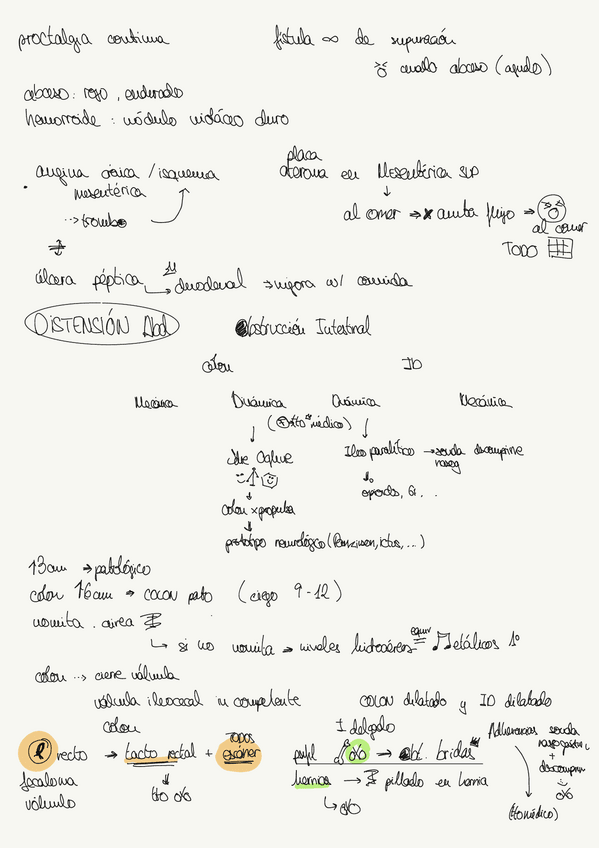 proctalgia continua
fístula ∞ de supuración
cuando absceso (agudo)
absceso: rojo, endurado
hemorroide: nódulo violáceo duro
angina / isquemia
mesentérica
→ trombo
placa
ateroma en Mesentérica SUP
↓
al comer → x aumta flujo ⇒
al comer
TODO
≠
úlcera péptica
→ duodenal → mejora w/ comida
DISTENSIÓN Abd
Obstrucción Intestinal
colon
ID
Mecánica
Dinámica
Dinámica
Mecánica
(tto médico)
Sdre Ogilvie
Íleo paralítico → sonda descomprime
nasog
opioides,
colon x propulsa
prototipo neurológico (Parkinson, ictus, ...)
13cm → patológico
colon 16cm → colon pato (ciego 9-12)
vomita . airea
↳ si no vomita → niveles hidroaéreos
equiv
Metálicos 1º
colon ⇢ cierre válvula
válvula ileocecal incompetente
COLON dilatado y ID dilatado
colon
recto → tacto rectal +
TODOS
escáner
fecaloma
vólvulo
↓
tto
I delgado
→ obst. bridas
hernias → pillado en hernia
Adherencias sonda
nasogástrica
+
descomprimir
(tto médico)